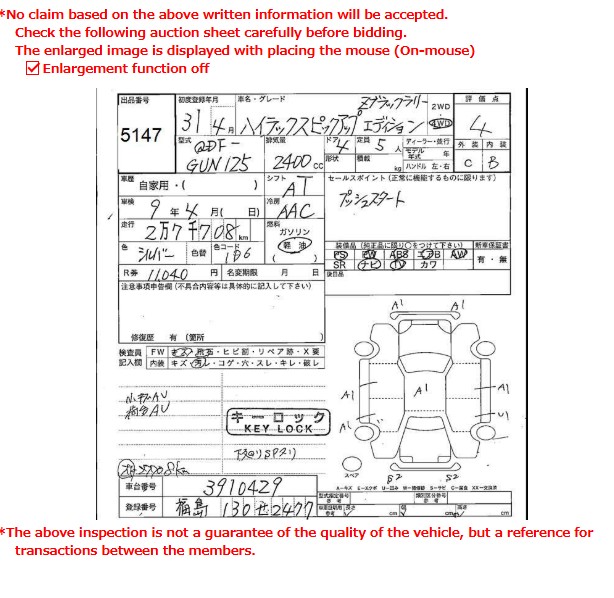 *No claim based on the above written information will be accepted.
Check the following auction sheet carefully before bidding.
The enlarged image is displayed with placing the mouse (On-mouse)
Enlargement function off
出品番号 初度登録年月 車名・グレード 評価点
5147 31 4月 ハイラックスピックアップ Zブラックラリーエディション 2WD 4WD 4
型式 排気量 ドア 定員 ディーラー・並行 外装 内装
QDF-GUN125 2400cc 4 5人 モデル年式 年 C B
形状 積載 kg ハンドル 左・右
車歴 シフト セールスポイント(正常に機能するものに限ります)
自家用・( ) AT プッシュスタート
車検 冷房
9年4月( 日) AAC
走行 燃料
2万7千708km ガソリン 軽油 ( )
色 色替 色コード 装備品(純正品に限り○をつけて下さい) 新車保証書
シルバー 1D6 PS PW ABS エアB AW 有・無
SR ナビ TV カワ
R券 11,040円 名変期限 月 日 後日品
注意事項申告欄(不具合内容等は具体的に記入して下さい)
修復歴 有 (箇所
検査員記入欄 FW キズ・飛石・ヒビ割・リペア跡・X要
内装 キズ・汚レ・コゲ・穴・スレ・キレ・破レ
キーロック
KEY LOCK
下回りSP21
A1
A1
A1
A1
A1
A1
U1
スペア
S2
車台番号 3910429
登録番号 福島 130 せ 2477
*The above inspection is not a guarantee of the quality of the vehicle, but a reference for
transactions between the members.